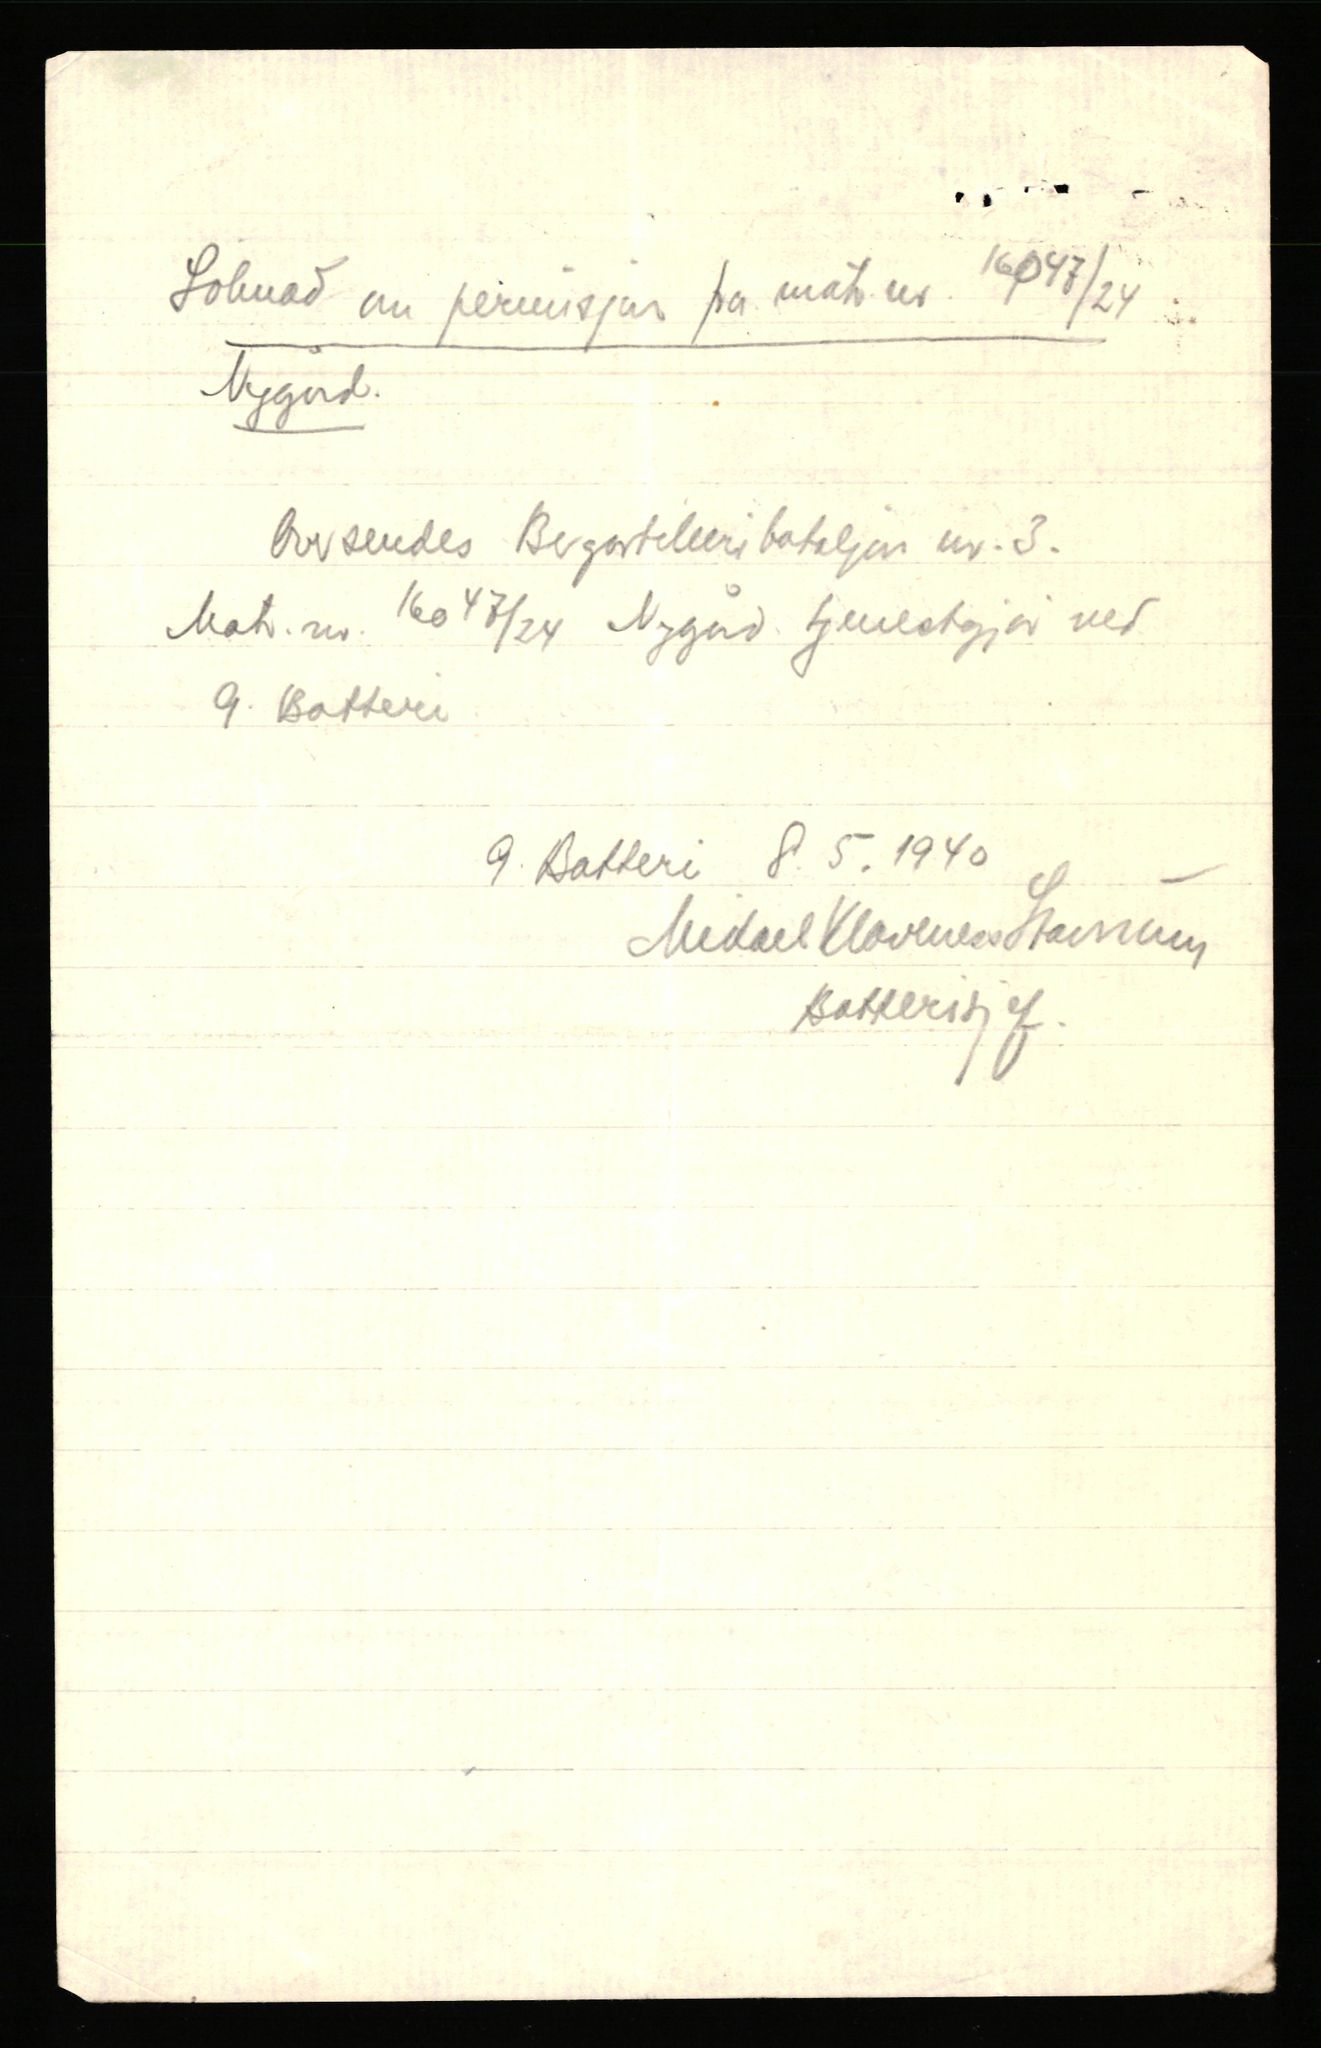 Søknad om permisjon fra matr. nr. 16047/24
Nygård.
Oversendes Bergartilleribataljon nr. 3.
Matr. nr. 16047/24 Nygård tjenestgjør ved
9. Batteri
9. Batteri 8. 5. 1940
Michael Klaveness
Batterisjef.